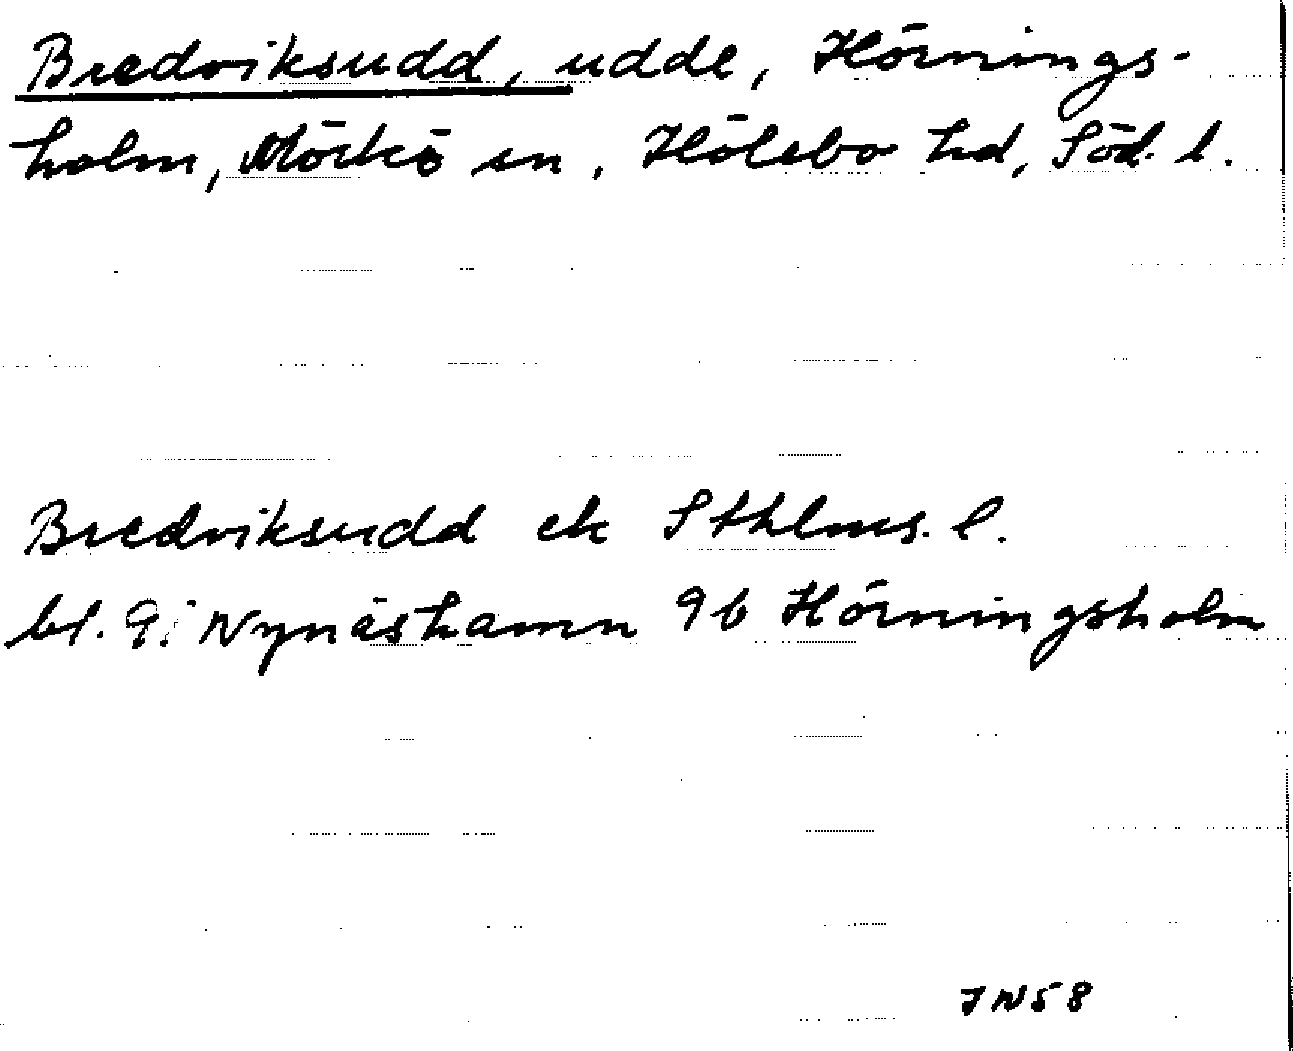 Bredviksudd, udde, Hörnings-
holm, Mörkö sn, Hölebo hd, Söd. l.
Bredviksudd ek Sthlms. l.
bl. 9i Nynäshamn 9b Hörningsholm
JN58